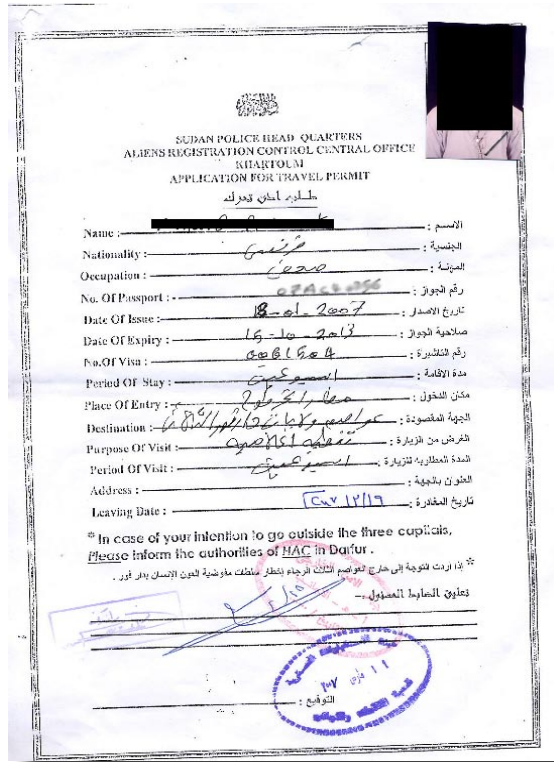 SUDAN POLICE HEAD QUARTERS
ALIENS REGISTRATION CONTROL CENTRAL OFFICE
KHARTOUM
APPLICATION FOR TRAVEL PERMIT
طلب اذن تحرك
Name : الاسم :
Nationality : فرنسي الجنسية :
Occupation : صحفي المهنة :
No. Of Passport : رقم الجواز :
Date Of Issue : 18-01-2007 تاريخ الاصدار :
Date Of Expiry : 15-10-2013 صلاحية الجواز :
No.Of Visa : رقم التاشيرة :
Period Of Stay : اسبوعين مدة الاقامة :
Place Of Entry : مطار الخرطوم مكان الدخول :
Destination : عواصم ولايات دارفور الثلاث الجهة المقصودة :
Purpose Of Visit : تغطية اعلامية الغرض من الزيارة :
Period Of Visit : اسبوعين المدة المطلوبة للزيارة :
Address : العنوان بالجهة :
Leaving Date : تاريخ المغادرة :
* In case of your intention to go outside the three capitals,
Please inform the authorities of HAC in Darfur .
* إذا اردت التوجة إلى خارج العواصم الثلاث الرجاء إخطار سلطات مفوضية العون الإنساني بدار فور .
تعليق الضابط المسؤول :-
التوقيع :